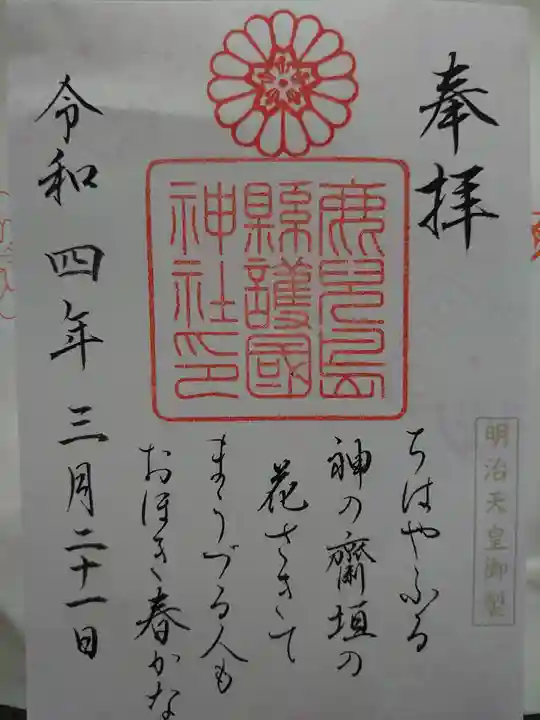 奉拝
鹿兒島
縣護國
神社印
明治天皇御製
ちはやふる
神の齋垣の
花さきて
まうづる人も
おほき春かな
令和四年三月二十一日